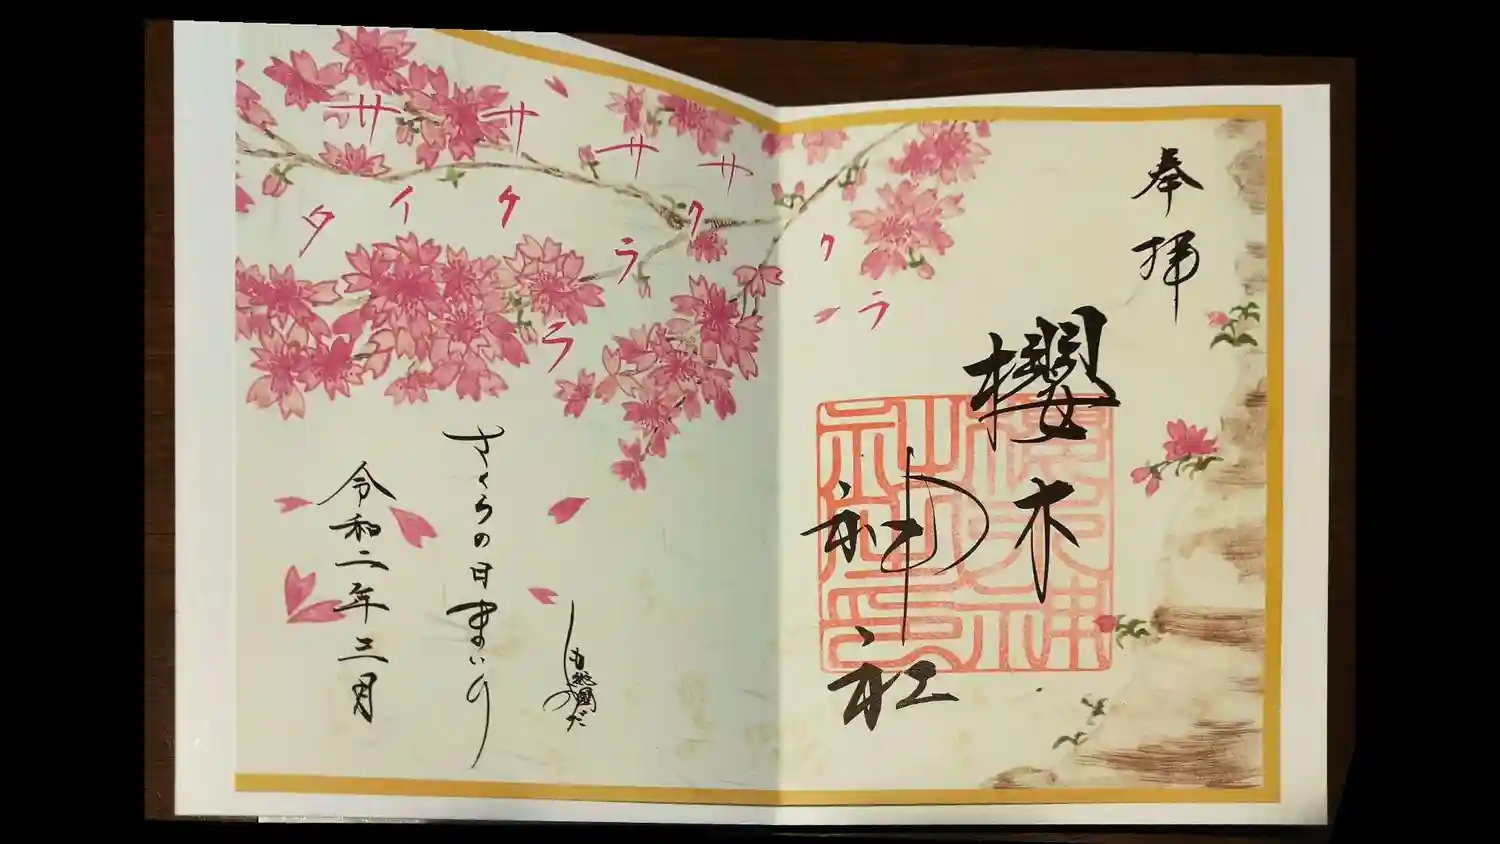 奉拝
櫻木神社
サクラ
サクラ
サクラ
サイタ
さくらの日まいり
令和二年三月